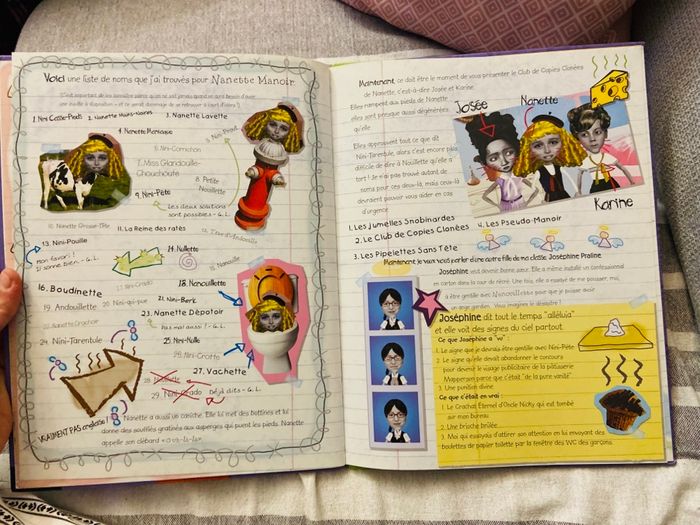 Voici une liste de noms que j'ai trouvés pour Nanette Manoir.
(C'est important de les connaître parce qu'on ne sait jamais quand on aura besoin d'avoir
une insulte à disposition - et ce serait dommage de se retrouver à court d'idées !).
1. Nini Casse-Pieds
3. Nanette Lavette
4. Nanette Maniasse
5. Nini-Pinut
6. Nini-Cornichon
7. Miss Glandouille-
Chouchoute
8. Petite
Nouillette
9. Nini-Pète
Les deux solutions
sont possibles - G.L.
10. Nanette Grosse-Tête
11. La Reine des ratés
12. Tare d'Andouille
13. Nini-Pouille
Mon favori !
Il sonne bien - G.L.
14. Nullette
15. Nanouille
16. Boudinette
17. Nini-Crado
18. Nanouillette
19. Andouillette
20. Nini-qui-pue
21. Nini-Berk
22. Nanette Crachoir
23. Nanette Dépotoir
Pas mal aussi ! - G.L.
24. Nini-Tarentule
25. Nini-Nulle
26. Nini-Crotte
27. Vachette
28. Nullette
29. Nini-Crado
Déjà dits - G.L.
VRAIMENT PAS anglaise !
Nanette a aussi un caniche. Elle lui met des bottines et lui
donne des soufflés gratinés aux asperges qui puent les pieds. Nanette
appelle son clébard « o-va-la-la ».
Maintenant, ce doit être le moment de vous présenter le Club de Copies Clonées
de Nanette, c'est-à-dire Josée et Karine.
Elles rampent aux pieds de Nanette
elles sont presque aussi dégénérées
qu'elle.
Elles approuvent tout ce que dit
Nini-Tarentule, alors c'est encore plus
difficile de dire à Nouillette qu'elle a
tort ! Je n'ai pas trouvé autant de
noms pour ces deux-là, mais ceux-là
devraient pouvoir vous aider en cas
d'urgence.
Josée
Nanette
Karine
1. Les Jumelles Snobinardes
2. Le Club de Copies Clonées
3. Les Pipelettes Sans Tête
4. Les Pseudo-Manoir
Maintenant je veux vous parler d'une autre fille de ma classe, Joséphine Praline.
Joséphine veut devenir bonne sœur. Elle a même installé un confessionnal
en carton dans la cour de récré. Une fois, elle a essayé de me pousser, moi,
à être gentille avec Nanouillette pour que je puisse avoir
un ange gardien. Vous imaginez le désastre !
Joséphine dit tout le temps "alléluia"
et elle voit des signes du ciel partout.
Ce que Joséphine a "vu" :
1. Le signe que je devrais être gentille avec Nini-Pète
2. Le signe qu'elle devait abandonner le concours
pour devenir le visage publicitaire de la pâtisserie
Mapperson parce que c'était "de la pure vanité"
3. Une punition divine
Ce que c'était en vrai :
1. Le Crachat Éternel d'Oncle Nicky qui est tombé
sur mon bureau
2. Une brioche brûlée
3. Moi qui essayais d'attirer son attention en lui envoyant des
boulettes de papier toilette par la fenêtre des WC des garçons.